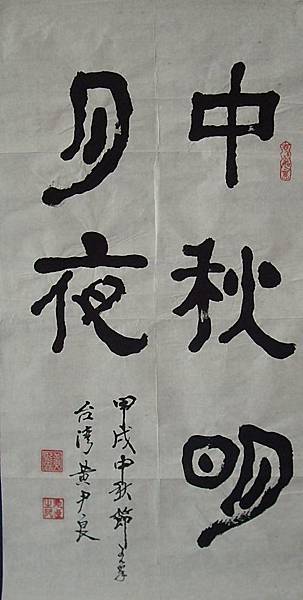 中秋明
月夜
甲戌中秋節
台湾黄尹良